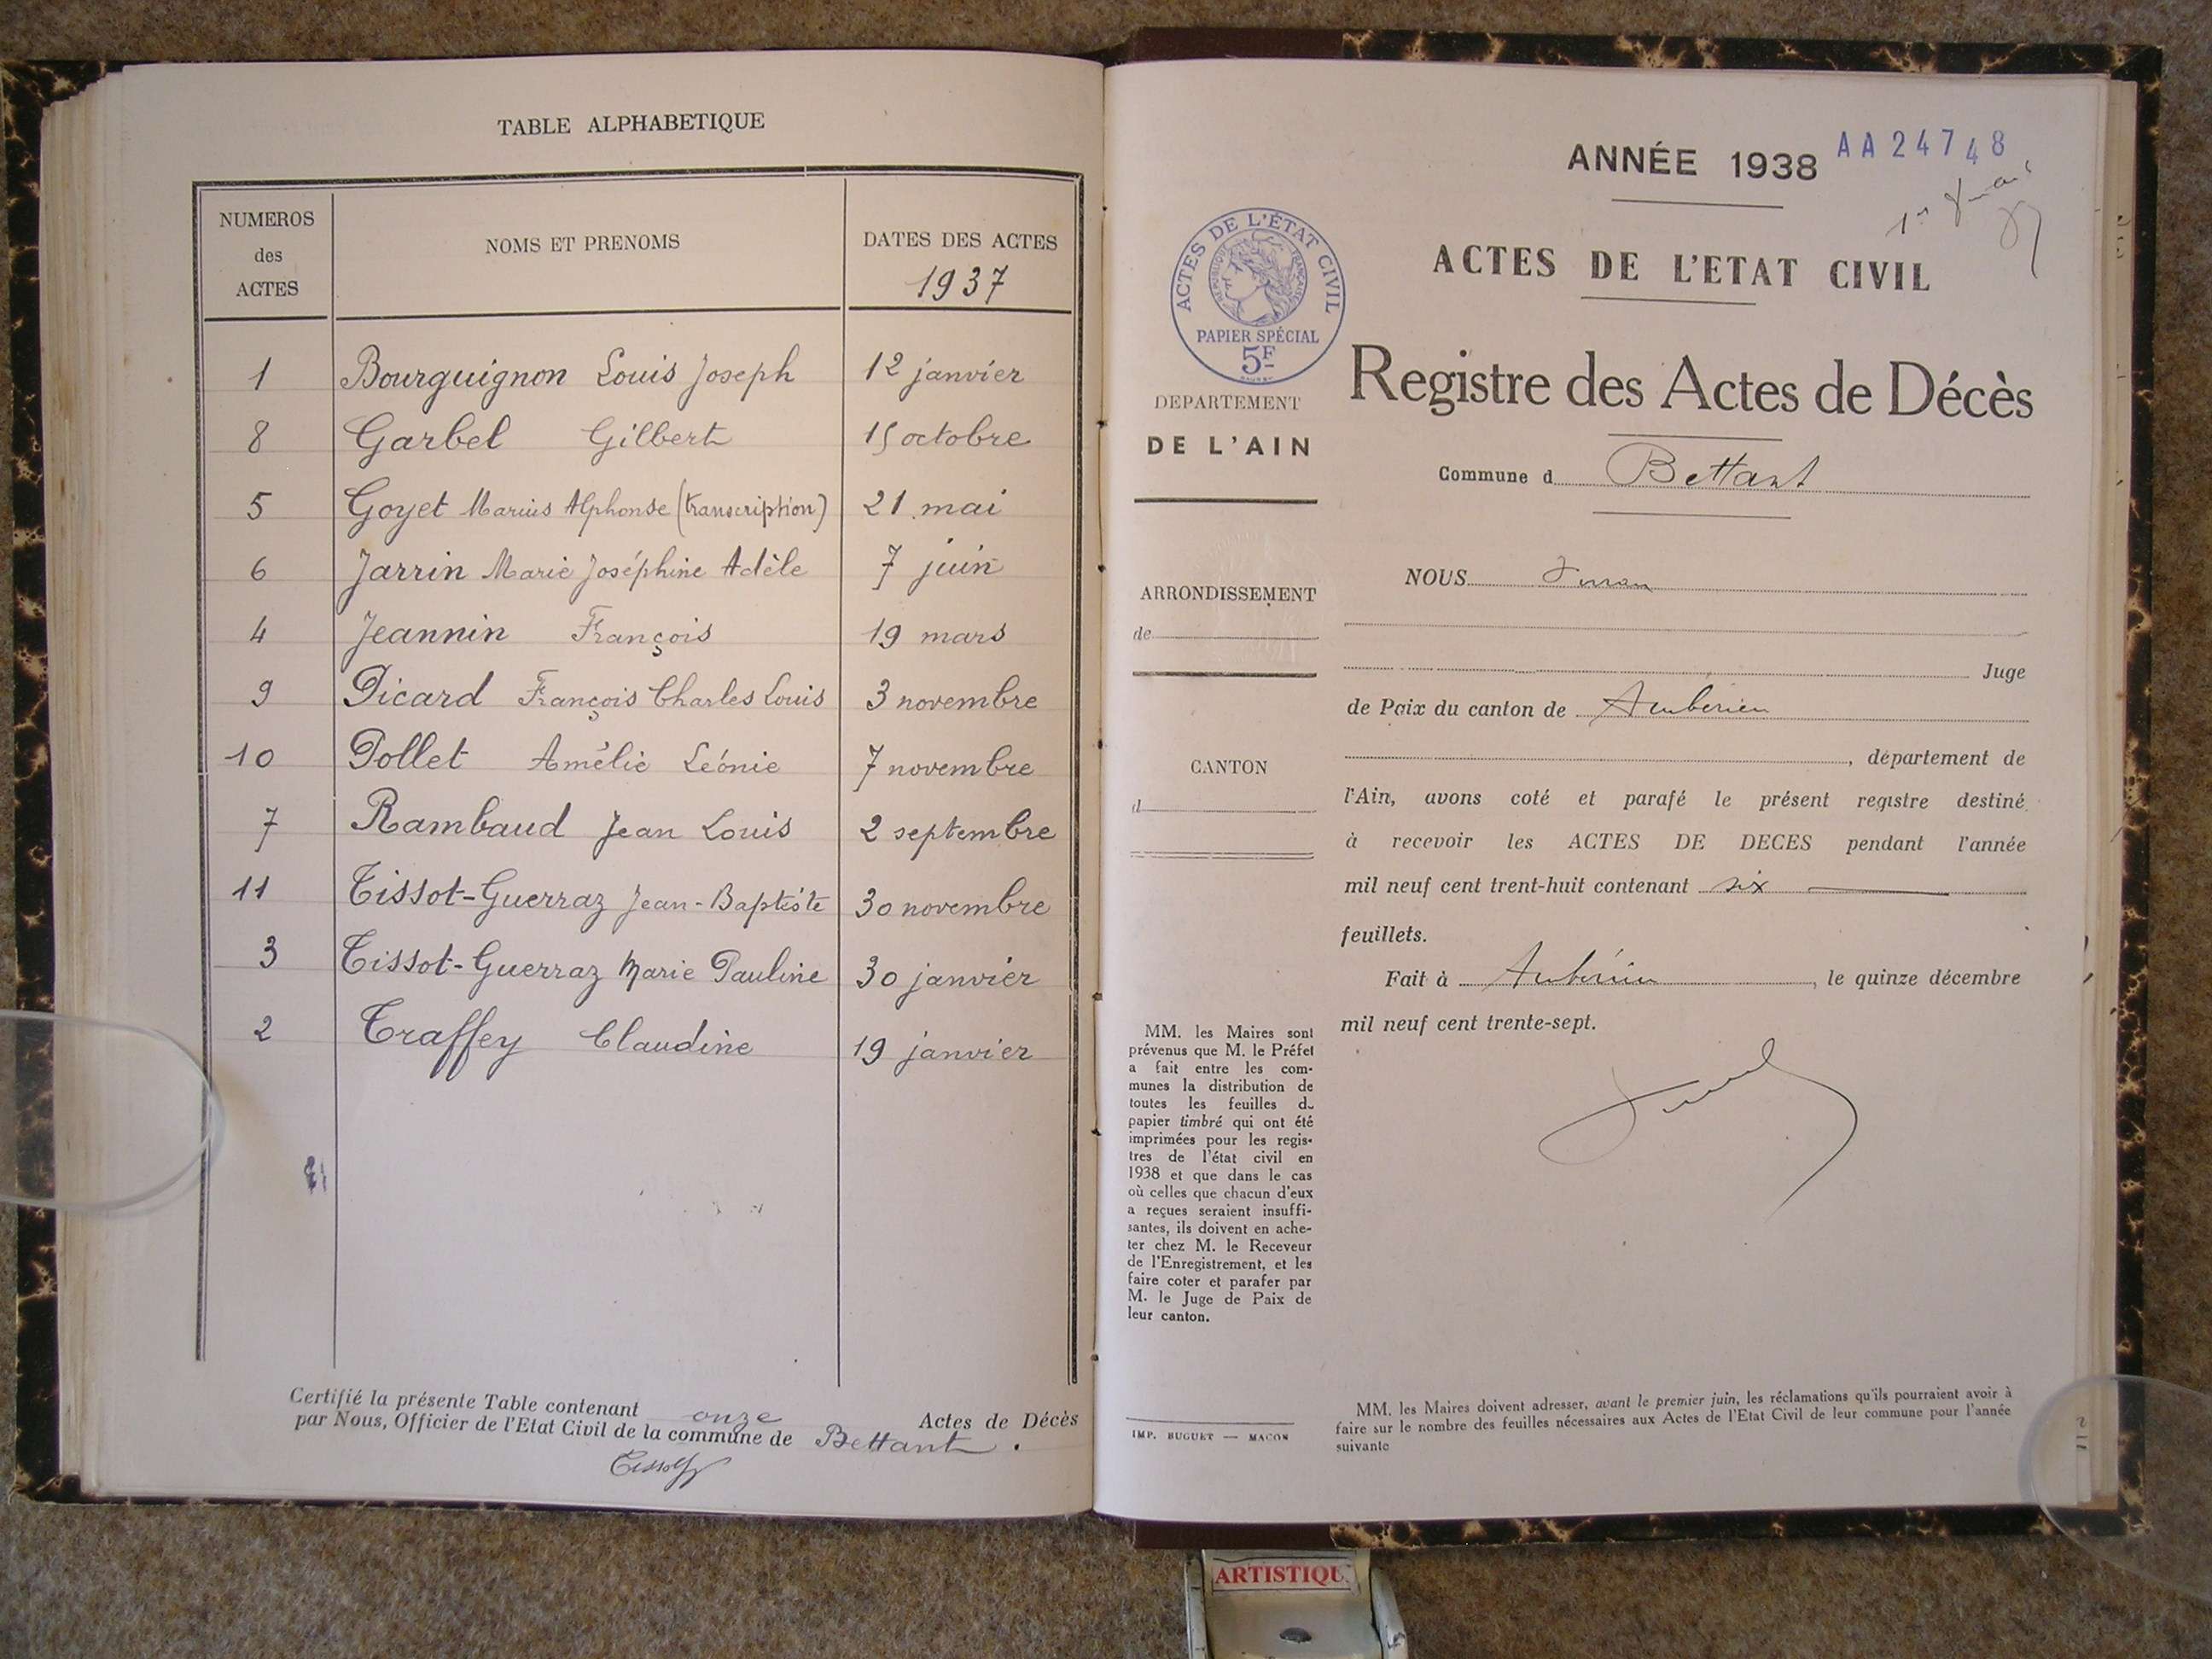 TABLE ALPHABETIQUE
NUMEROS des ACTES
NOMS ET PRENOMS
DATES DES ACTES
1937
1 Bourguignon Louis Joseph 12 janvier
8 Garbel Gilbert 15 octobre
5 Goyet Marius Alphonse (transcription) 21 mai
6 Jarrin Marie Joséphine Adèle 7 juin
4 Jeannin François 19 mars
9 Picard François Charles Louis 3 novembre
10 Pollet Amélie Léonie 7 novembre
7 Rambaud Jean Louis 2 septembre
11 Tissot-Guerraz Jean-Baptiste 30 novembre
3 Tissot-Guerraz Marie Pauline 30 janvier
2 Traffey Claudine 19 janvier
Certifié la présente Table contenant onze Actes de Décès
par Nous, Officier de l'Etat Civil de la commune de Bettant.
ANNÉE 1938
AA24748
ACTES DE L'ETAT CIVIL
ACTES DE L'ÉTAT CIVIL
REPUBLIQUE FRANÇAISE
PAPIER SPÉCIAL
5F
Registre des Actes de Décès
DEPARTEMENT
DE L'AIN
Commune d Bettant
ARRONDISSEMENT
de
CANTON
d
NOUS
Juge
de Paix du canton de Ambérieu
, département de
l'Ain, avons coté et parafé le présent registre destiné
à recevoir les ACTES DE DECES pendant l'année
mil neuf cent trent-huit contenant six
feuillets.
Fait à Ambérieu, le quinze décembre
mil neuf cent trente-sept.
MM. les Maires sont
prévenus que M. le Préfet
a fait entre les com-
munes la distribution de
toutes les feuilles du
papier timbré qui ont été
imprimées pour les regis-
tres de l'état civil en
1938 et que dans le cas
où celles que chacun d'eux
a reçues seraient insuffi-
santes, ils doivent en ache-
ter chez M. le Receveur
de l'Enregistrement, et les
faire coter et parafer par
M. le Juge de Paix de
leur canton.
IMP. BUGUET — MACON
MM. les Maires doivent adresser, avant le premier juin, les réclamations qu'ils pourraient avoir à
faire sur le nombre des feuilles nécessaires aux Actes de l'Etat Civil de leur commune pour l'année
suivante
ARTISTIQU